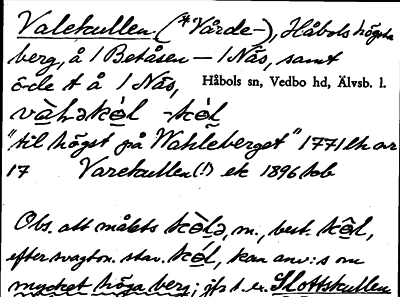 Valekullen (*Vårde-), Håbols högsta
berg, å 1 Betåsen – 1 Näs, samt
öde t å 1 Näs, Håbols sn, Vedbo hd, Älvsb. l.
vàləkól -kól
"til högst på Wahleberget" 1771 lh ar
17 Varekullen (!) ek 1896 kob
Obs. att målets kòlə, m., best. kôl,
efter svagton. stav. kól, kan anv:s om
mycket höga berg; jfr t. ex. Slottskullen